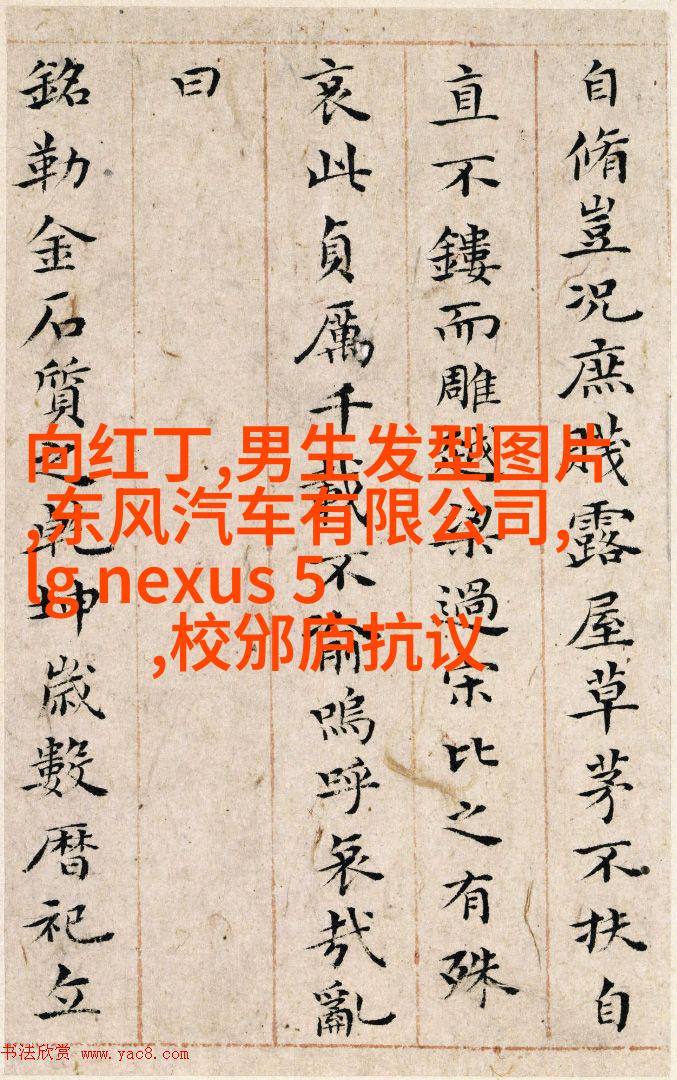 自脩豈况庶賤露屋草茅不扶自
直不鏤而雕越梁過宋比之有殊
哀此貞厲千載不渝嗚呼哀哉亂
曰
銘勒金石質之乾坤歲數暦祀立
向红丁,男生发型图片
,东风汽车有限公司,
lg nexus 5
,校邠庐抗议
书法欣赏 www.yac8.com